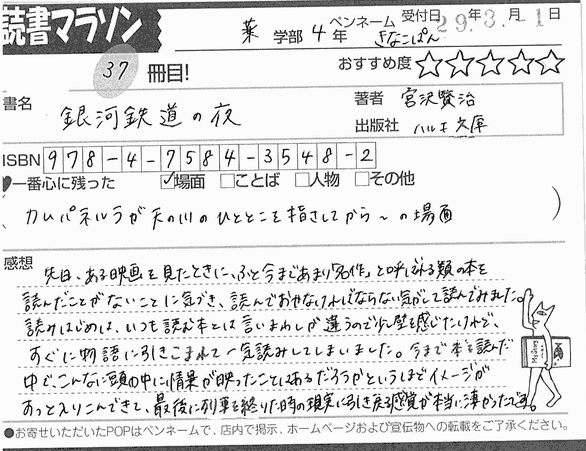 読書マラソン
薬 学部 4 年 ペンネーム きなこぱん 受付日 29年3.月-1日
37 冊目!
おすすめ度 ☆☆☆☆☆
書名 銀河鉄道の夜
著者 宮沢賢治
出版社 ハルキ文庫
ISBN 978-4-7584-3548-2
一番心に残った ☑場面 □ことば □人物 □その他
(カムパネルラが天の川のひとところを指さしてから〜の場面)
感想 先日、ある映画を見たときに、ふと今まであまり「名作」と呼ばれる類の本を
読んだことがないことに気づき、読んでおかなければならない気がして読んでみました。
読みはじめは、いつも読む本とは言いまわしが違うので少し壁を感じたけれど、
すぐに物語に引きこまれて一気読みしてしまいました。今まで本を読んだ
中で、こんなに頭の中に情景が映ったことはあるだろうかというほどイメージが
すっと入りこんできて、最後に列車を降りた時の現実に引き戻る感覚が本当に凄かったです。
●お寄せいただいたPOPはペンネームで、店内で掲示、ホームページおよび宣伝物への転載をご了承ください。